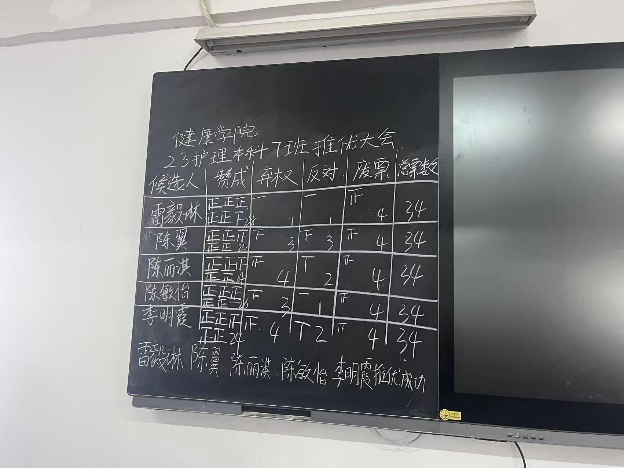 健康学院
23护理本科7班推优大会
候选人 赞成 弃权 反对 废票 总票数
雷毅琳 正正正正正下 一 1 一 1 正 4 34
陈翼 正正正正正 下 3 下 3 正 4 34
陈丽淇 正正正正正 正 4 T 2 正 4 34
陈敏怡 正正正正正 下 3 一 1 正 4 34
李明霞 正正正正正24 正 4 T 2 正 4 34
雷毅琳 陈翼 陈丽淇 陈敏怡 李明霞推优成功